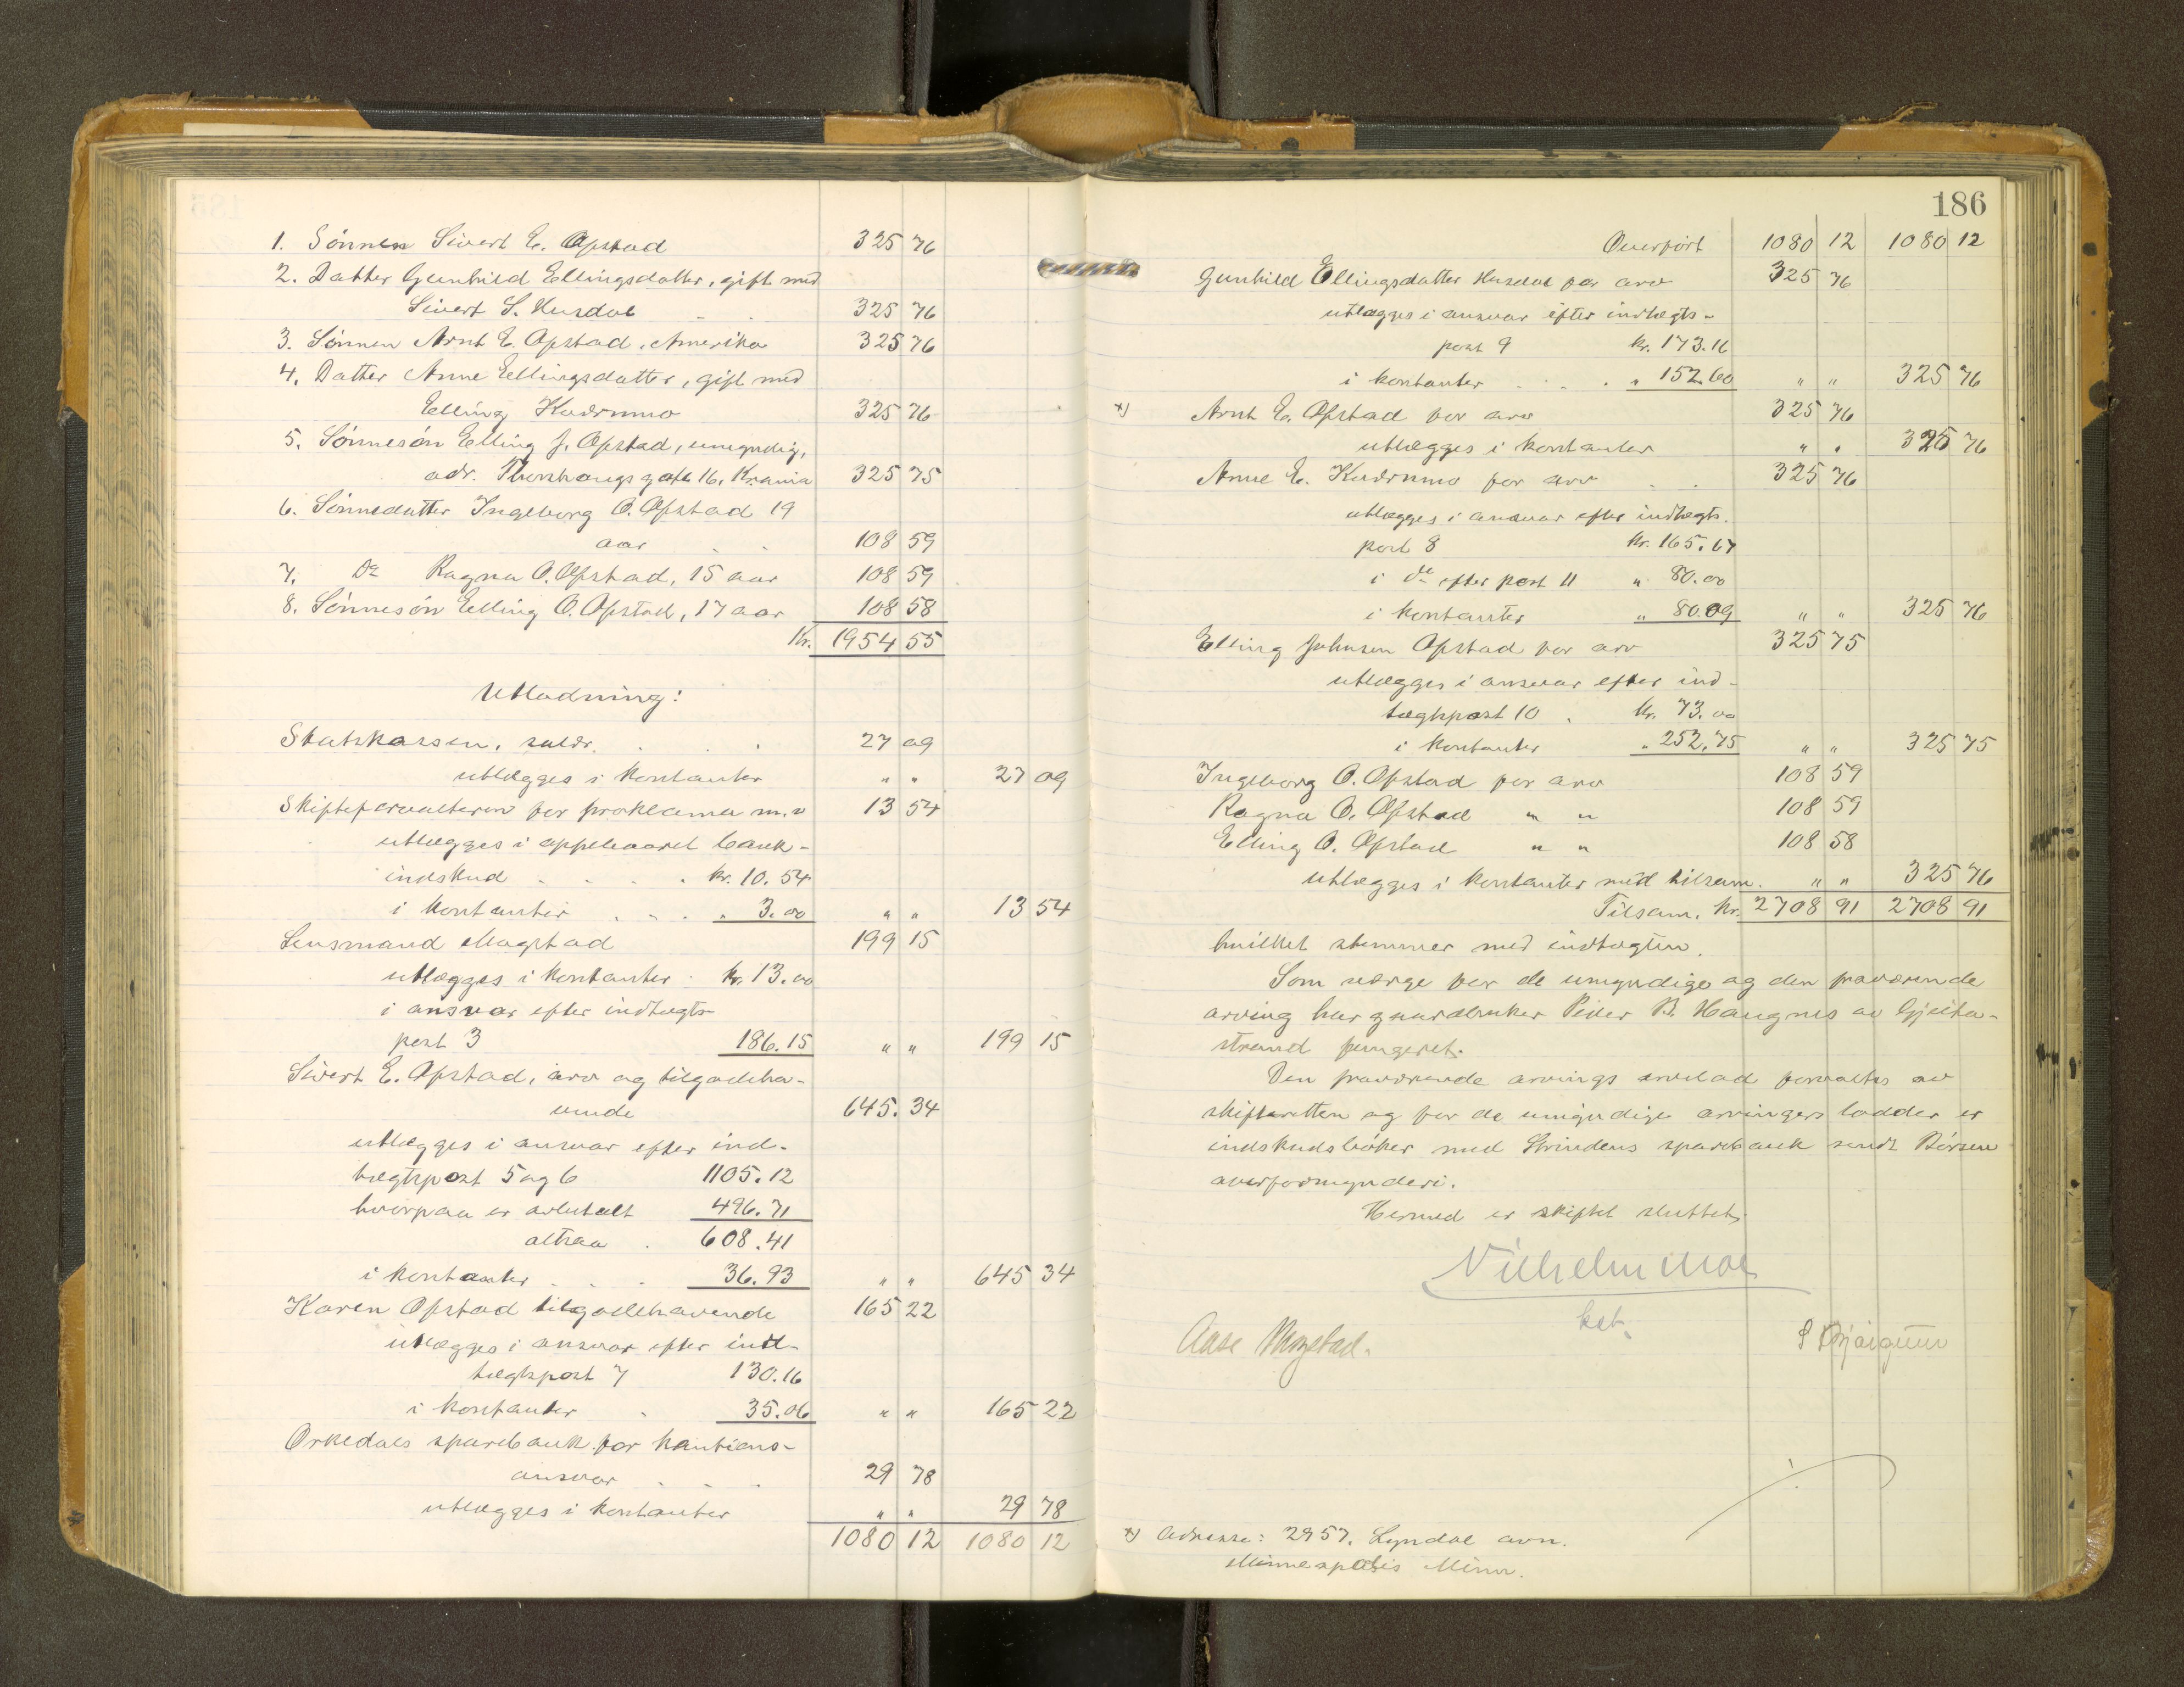 1. Sönnen Sivert E. Opstad 325 76
2. Datter Gunhild Ellingsdatter, gift med
Sivert S. Husdal 325 76
3. Sönnen Arnt E. Opstad, Amerika 325 76
4. Datter Anne Ellingsdatter, gift med
Elling Kvernmo 325 76
5. Sönnesön Elling J. Opstad, umyndig,
adr. Thorshaugs gate 16, Kr.ania 325 75
6. Sönnedatter Ingeborg O. Opstad 19
aar 108 59
7. Do Ragna O. Opstad, 15 aar 108 59
8. Sönnesön Elling O. Opstad, 17 aar 108 58
Kr. 1954 55
Utlodning:
Statskassen, 27 09
utlægges i kontanter " " 27 09
Skifteforvalteren for proklama m.v 13 54
utlægges i oppebaaret bank-
indskud kr. 10.54
i kontanter " 3.00 " " 13 54
Lensmand Mogstad 199 15
utlægges i kontanter kr. 13.00
i ansvar efter indtægts-
post 3 186.15 " " 199 15
Sivert E. Opstad, arv og tilgodeha-
vende 645.34
utlægges i ansvar efter ind-
tægtspost 5 og 6 1105.12
hvorpaa er avbetalt 496.71
altsaa 608.41
i kontanter 36.93 " " 645 34
Karen Opstad tilgodehavende 165 22
utlægges i ansvar efter ind-
tægtspost 7 130.16
i kontanter 35.06 " " 165 22
Orkedals sparebank for kautions-
ansvar 29 78
utlægges i kontanter " " 29 78
1080 12 1080 12
186
Overført 1080 12 1080 12
Gunhild Ellingsdatter Husdal for arv 325 76
utlægges i ansvar efter indtægts-
post 9 kr. 173.16
i kontanter " 152.60 " " 325 76
x) Arnt E. Opstad for arv 325 76
utlægges i kontanter " " 325 76
Anne E. Kvernmo for arv 325 76
utlægges i ansvar efter indtægts-
post 8 kr. 165.67
i do efter post 11 " 80.00
i kontanter " 80.09 " " 325 76
Elling Johnsen Opstad for arv 325 75
utlægges i ansvar efter ind-
tægtspost 10 kr. 73.00
i kontanter " 252.75 " " 325 75
Ingeborg O. Opstad for arv 108 59
Ragna O. Opstad " " 108 59
Elling O. Opstad " " 108 58
utlægges i kontanter med tilsam. " " 325 76
Tilsam. kr. 2708 91 2708 91
hvilket stemmer med indtægten.
Som værge for de umyndige og den fraværende
arving har gaardbruker Peder B. Haugnes av Gjeita-
strand fungeret.
Den fraværende arvings arvelod forvaltes av
skifteretten og for de umyndige arvingers lodder er
indskudsböker med Strindens sparebank sendt Börsen
overformynderi.
Hermed er skiftet sluttet.
Vilhelm Moe
kst.
Aase Mogstad.
x) Adresse: 2957. Lyndal avn.
Minneapolis Minn.